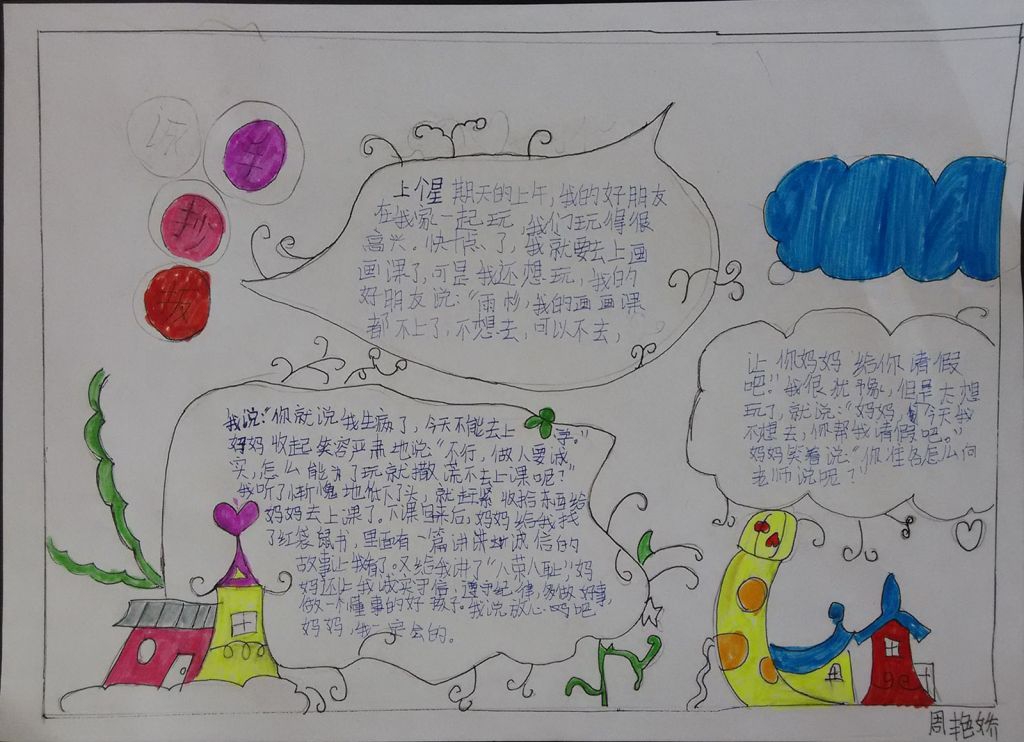 手
抄
报
上个星期天的上午,我的好朋友
在我家一起玩,我们玩得很
高兴。快十点了,我就要去上画
画课了,可是我还想玩,我的
好朋友说:“雨杉,我的画画课
都不上了,不想去,可以不去,
让你妈妈给你请假
吧!”我很犹豫,但是太想
玩了,就说:“妈妈,今天我
不想去,你帮我请假吧。”
妈妈笑着说:“你准备怎么向
老师说呢?
我说:“你就说我生病了,今天不能去上学。”
妈妈收起笑容严肃地说“不行,做人要诚
实,怎么能为了玩就撒谎不去上课呢?”
我听了惭愧地低下了头,就赶紧收拾东西给
妈妈去上课了。下课回来后,妈妈给我找
了红袋鼠书,里面有一篇讲诚实诚信的
故事让我看了。又给我讲了“八荣八耻”,妈
妈还让我诚实守信,遵守纪律,多做好事,
做一个懂事的好孩子。我说放心吗吧
妈妈,我一定会的。
周艳娇